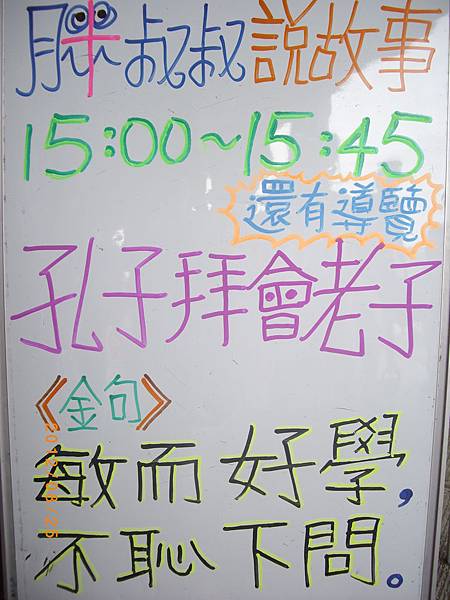 胖叔叔說故事
15:00~15:45
還有導覽
孔子拜會老子
《金句》
敏而好學,
不恥下問。